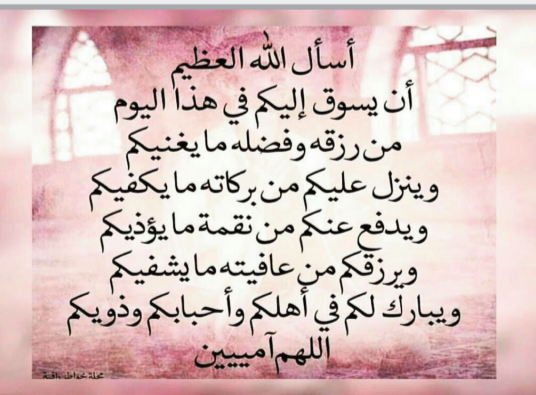 أسأل الله العظيم
أن يسوق إليكم في هذا اليوم
من رزقه وفضله ما يغنيكم
وينزل عليكم من بركاته ما يكفيكم
ويدفع عنكم من نقمة ما يؤذيكم
ويرزقكم من عافيته ما يشفيكم
ويبارك لكم في أهلكم وأحبابكم وذويكم
اللهم آمييين
مجلة خواطر